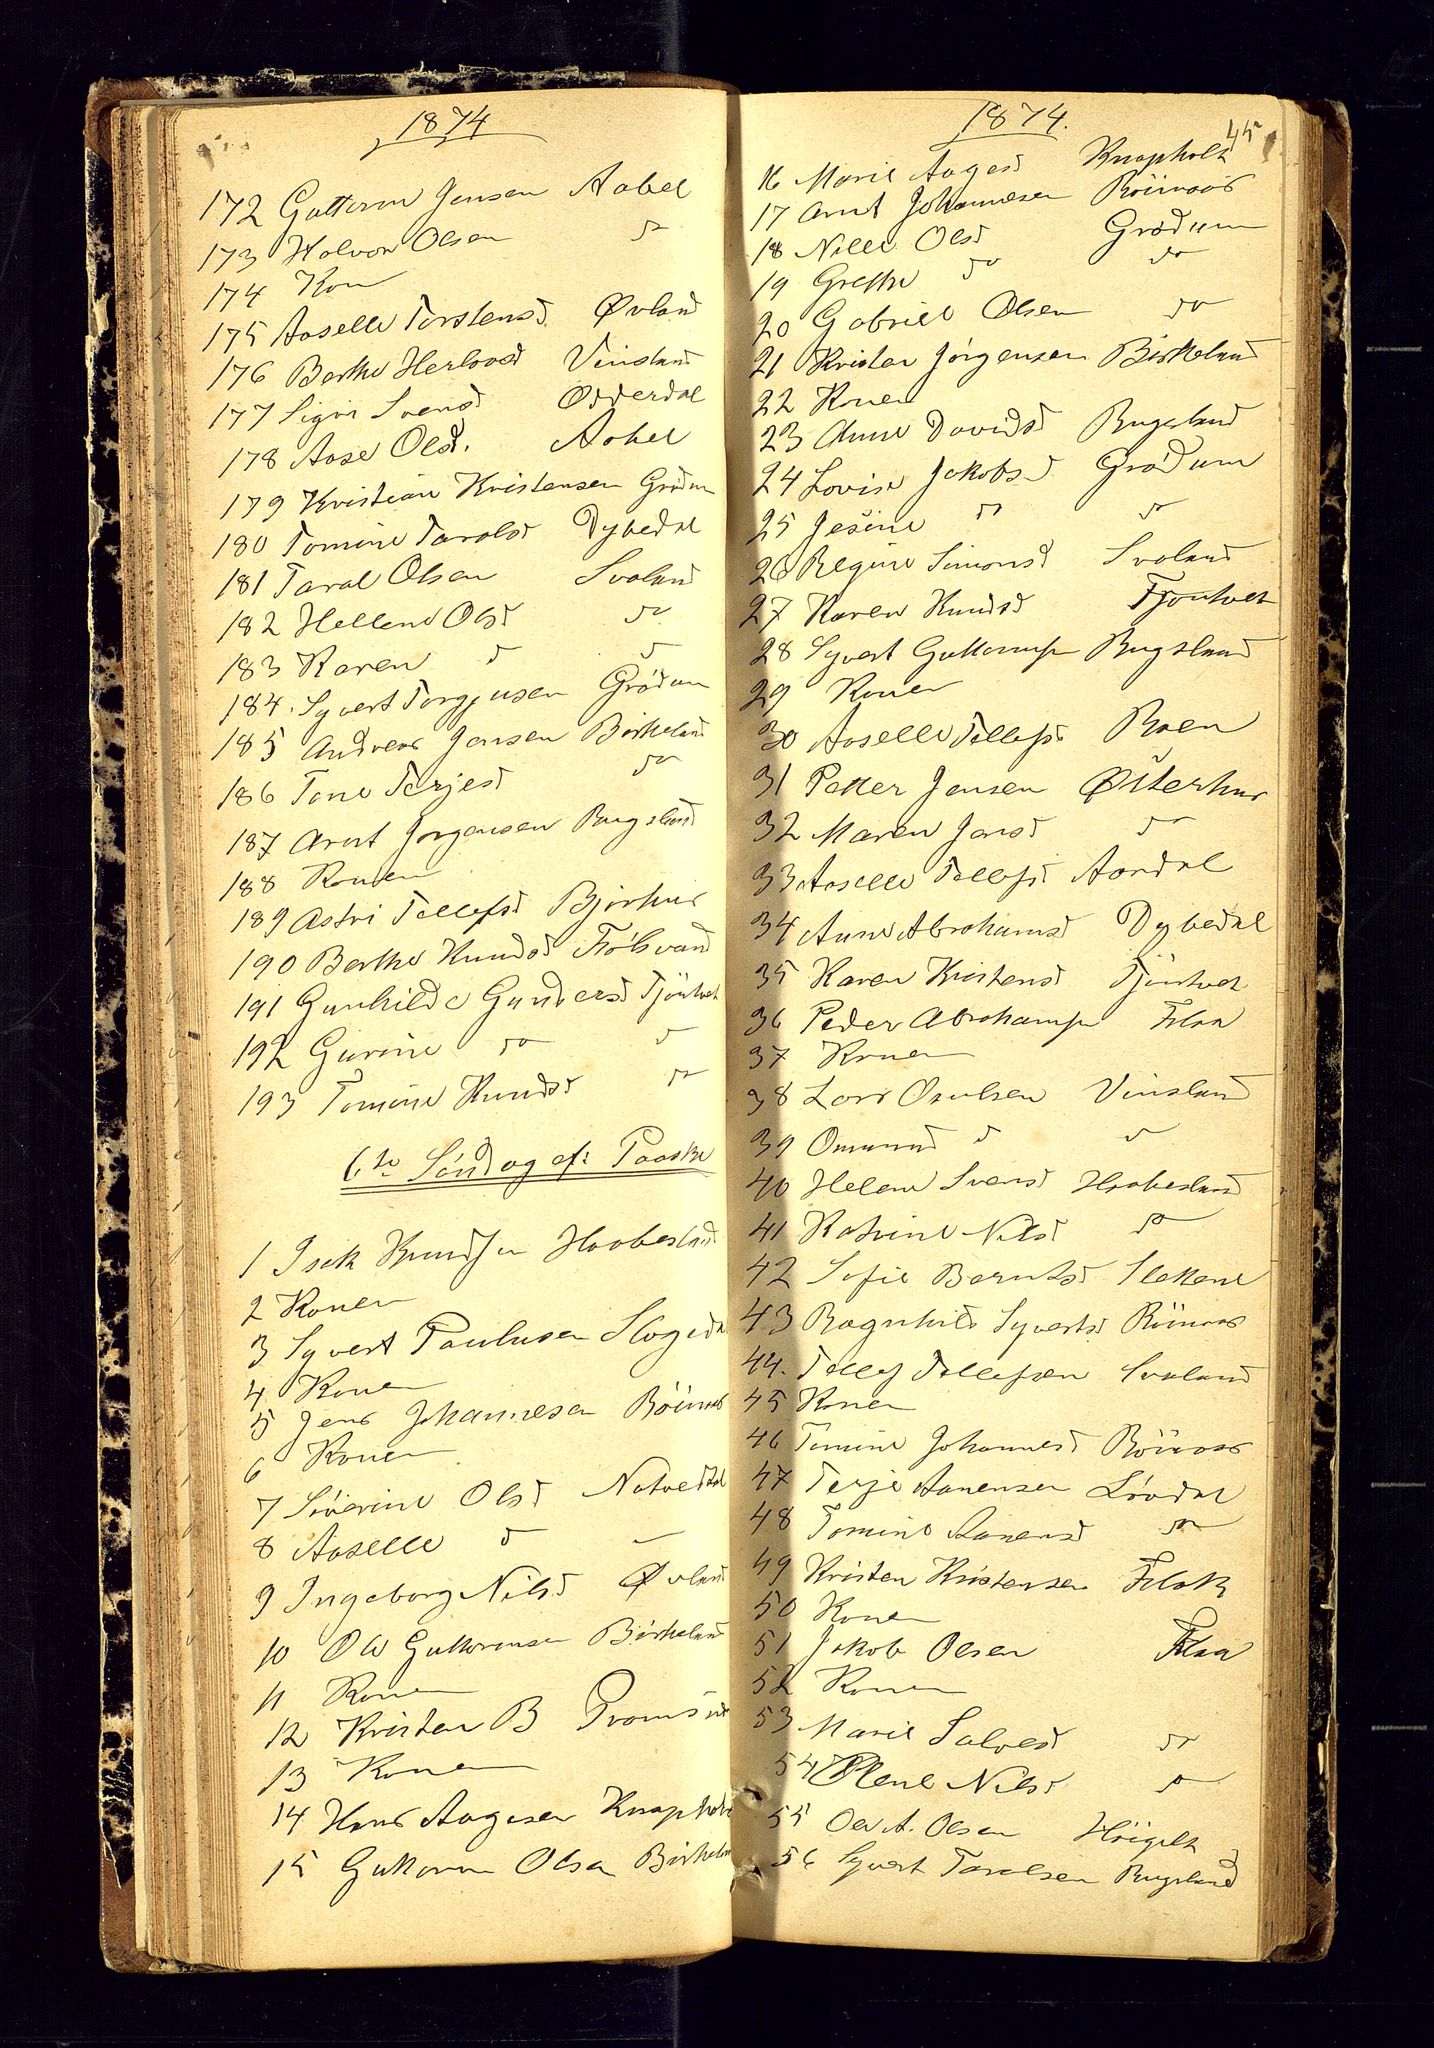 1874
172 Guttorm Jensen Aabel
173 Halvor Olsen do
174 Kon
175 Aaselle Torstensd Øvland
176 Berthe Herlovsd Vinsland
177 Sigri Svensd Odderdal
178 Aase Olsd. Aabel
179 Kristian Kristensen Grødum
180 Tomine Taralsd Dybedal
181 Taral Olsen Svaland
182 Hellene Olsd do
183 Karen d d
184. Syvert Torgjusen Grødum
185 Andreas Jensen Birkeland
186 Tone Terjesd do
187 Arnt Jørgensen Bugsland
188 Konen
189 Astri Tellefsd Bjorhus
190 Berthe Knudsd Fidsvand
191 Gunhilde Gundersd Tjöntvet
192 Gurine do d
193 Tomine Knudsd do
6te Søndag ef: Paaske
1 Isak Knudsen Haabesland
2 Konen
3 Syvert Paulusen Slogedal
4 Konen
5 Jens Johannesen Röinaas
6 Konen
7 Siverine Olsd Natvedtdal
8 Aaselle d —
9 Ingeborg Nilsd Øvland
10 Ole Guttormsen Birkeland
11 Konen
12 Kristen B
13 Konen
14 Hans Aagesen Knapholt
15 Guttorm Olsen Birkeland
1874.
45
16 Marie Aagesd Knapholt
17 Arnt Johannesen Röinaas
18 Nille Olsd Grødum
19 Grethe do do
20 Gabriel Olsen do
21 Kristen Jørgensen Birkeland
22 Konen
23 Anne Davidsd Bugsland
24 Lovise Jakobsd Grødum
25 Jesine do do
26 Regine Simonsd Svaland
27 Karen Knudsd Tjöntvet
28 Syvert Guttormsen Bugsland
29 Konen
30 Aaselle Tellefsd Boen
31 Petter Jensen Østerhus
32 Maren Jensd do
33 Aaselle Tellefsd Aardal
34 Anne Abrahamsd Dybedal
35 Karen Kristensd Tjöntvet
36 Peder Abrahamsen Flaa
37 Konen
38 Lars Osulsen Vinsland
39 Omund d d
40 Helene Svensd Haabesland
41 Katrine Nilsd do
42 Sofie Berntsd
43 Ragnhild Syvertsd Röinaas
44. Tellef Tellefsen Svaland
45 Konen
46 Tomine Johannesd Röinaas
47 Terje Aanensen Lövdal
48 Tomine Aanensd do
49 Kristen Kristensen Flak
50 Konen
51 Jakob Olsen Flaa
52 Konen
53 Marie Salvesd do
54 Olene Nilsd do
55 Ole A. Olsen Höigilt
56 Syvert Taralsen Bugsland